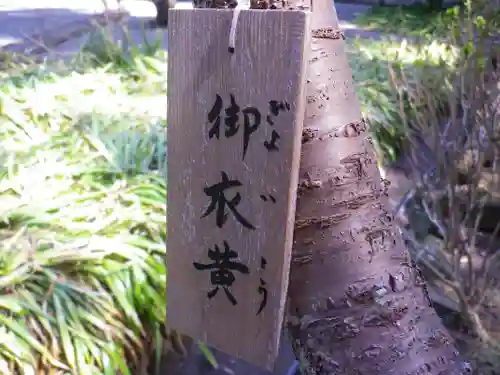 御衣黄
ぎょいこう